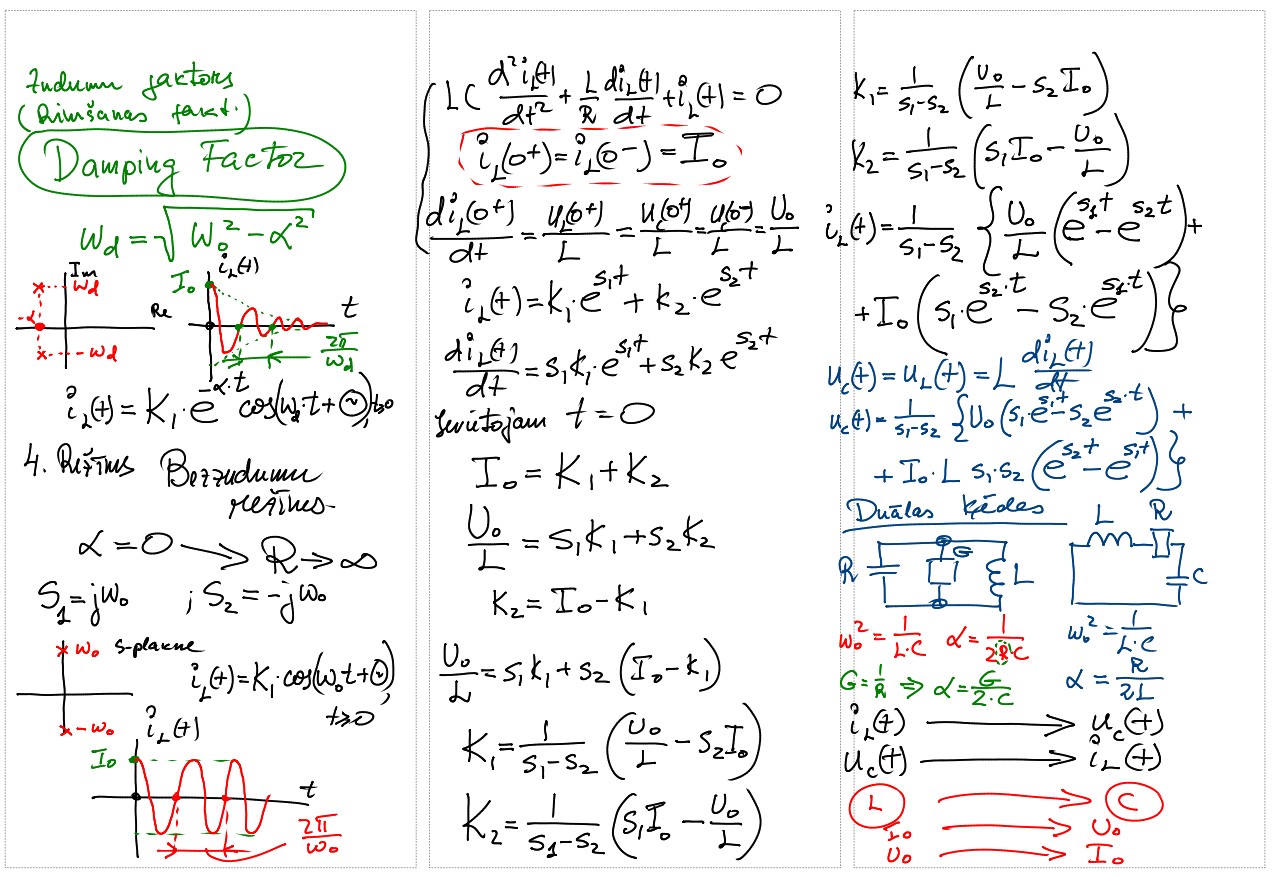 Zudumu faktors
(Rimšanas fakt.)
Damping Factor
ω_d = √(ω₀² − α²)
Im
ω_d
-α
Re
-ω_d
i_L(t)
I₀
t
2π/ω_d
i_L(t) = K₁·e^(−α·t) cos(ω_d·t + (~)), t≥0
4. Režīms Bezzudumu
režīms
α = 0 → R → ∞
S₁ = jω₀ ; S₂ = −jω₀
ω₀ s-plakne
i_L(t) = K₁·cos(ω₀t + (~)),
t≥0
-ω₀
i_L(t)
I₀
t
2π/ω₀
LC d²i_L(t)/dt² + L/R di_L(t)/dt + i_L(t) = 0
i_L(0⁺) = i_L(0⁻) = I₀
di_L(0⁺)/dt = u_L(0⁺)/L = u_c(0⁺)/L = u_c(0⁻)/L = U₀/L
i_L(t) = K₁·e^(s₁t) + K₂·e^(s₂t)
di_L(t)/dt = s₁K₁·e^(s₁t) + s₂K₂ e^(s₂t)
Ievietojam t = 0
I₀ = K₁ + K₂
U₀/L = s₁K₁ + s₂K₂
K₂ = I₀ − K₁
U₀/L = s₁K₁ + s₂(I₀ − K₁)
K₁ = 1/(s₁−s₂) (U₀/L − s₂I₀)
K₂ = 1/(s₁−s₂) (s₁I₀ − U₀/L)
K₁ = 1/(s₁−s₂) (U₀/L − s₂I₀)
K₂ = 1/(s₁−s₂) (s₁I₀ − U₀/L)
i_L(t) = 1/(s₁−s₂) {U₀/L (e^(s₁t) − e^(s₂t)) +
+ I₀ (s₁·e^(s₂·t) − s₂·e^(s₁·t))}
u_c(t) = u_L(t) = L di_L(t)/dt
u_c(t) = 1/(s₁−s₂) {U₀ (s₁e^(s₁t) − s₂e^(s₂·t)) +
+ I₀·L s₁·s₂ (e^(s₂t) − e^(s₁t))}
Duālas ķēdes
R G L
L R C
ω₀² = 1/(L·C) α = 1/(2RC) ω₀² = 1/(L·C)
G = 1/R ⇒ α = G/(2·C) α = R/(2L)
i_L(t) → u_c(t)
u_c(t) → i_L(t)
L → C
I₀ → U₀
U₀ → I₀